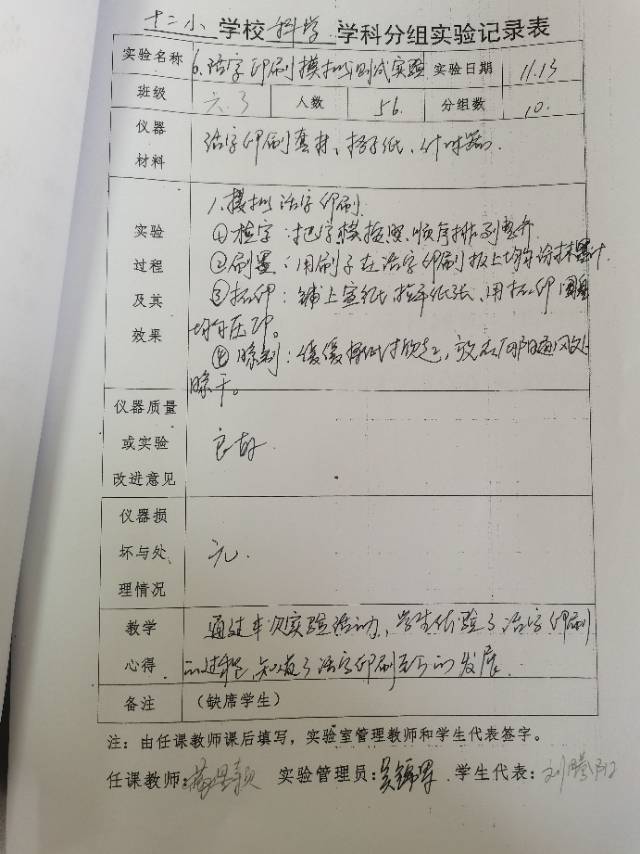 十二小 学校 科学 学科分组实验记录表
实验名称 6.活字印刷模拟测试实验 实验日期 11.13
班级 六.3 人数 56. 分组数 10.
仪器 活字印刷套材、 纸、计时器.
材料
实验 1.模拟活字印刷.
①检字:把字模按照顺序排列整齐
过程 ②刷墨:用刷子在活字印刷板上均匀涂抹墨汁.
及其 ③拓印:铺上宣纸 纸张、用拓印
效果 均匀压印。
④晾制:缓缓将纸 起,放在 通风处
晾干。
仪器质量
或实验 良好.
改进意见
仪器损
坏与处 无.
理情况
教学 通过本次实验活动,学生体验了活字印刷
心得 的过程,知道了活字印刷 的发展.
备注 (缺席学生)
注:由任课教师课后填写,实验室管理教师和学生代表签字。
任课教师: 实验管理员: 学生代表: